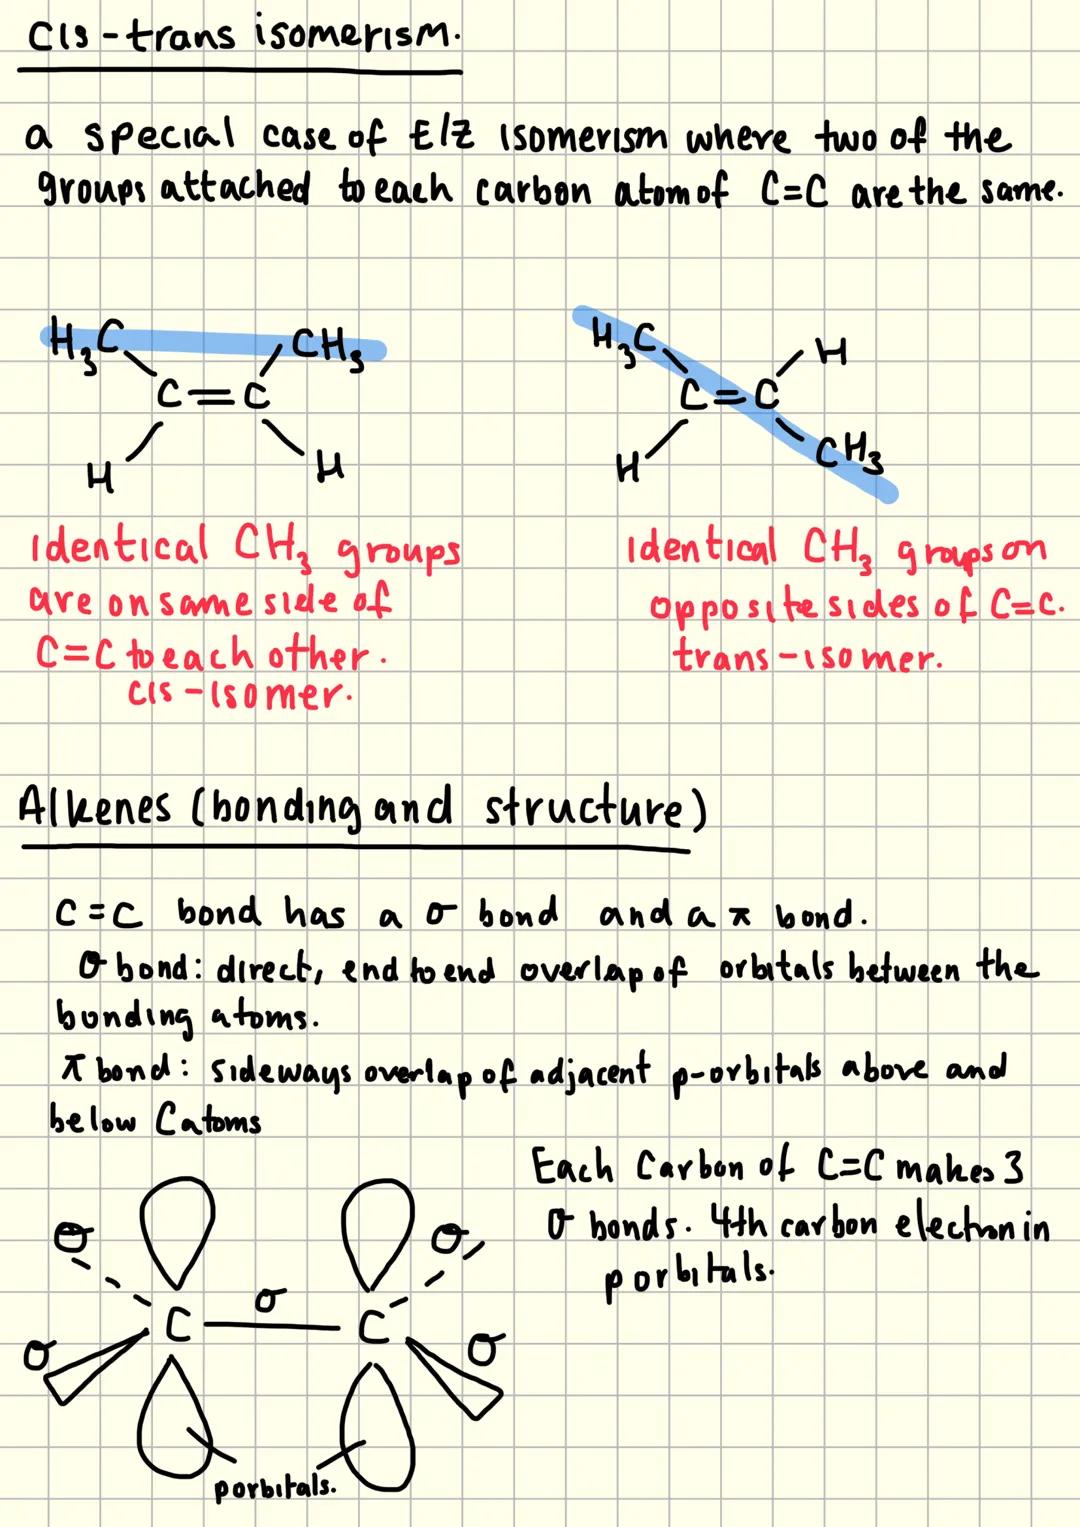 cis-trans isomerism.
a special case of E/Z isomerism where two of the
groups attached to each carbon atom of C=C are the same.
H₃C CH₃
C=C
H H
H₃C H
C=C
H CH₃
identical CH₃ groups
are on same side of
C=C to each other.
cis-isomer.
identical CH₃ groups on
opposite sides of C=C.
trans-isomer.
Alkenes (bonding and structure)
C=C bond has a σ bond and a π bond.
σ bond: direct, end to end overlap of orbitals between the
bonding atoms.
π bond: sideways overlap of adjacent p-orbitals above and
below C atoms
Each Carbon of C=C makes 3
σ bonds. 4th carbon electron in
p orbitals.
σ σ
C σ C
σ σ
p orbitals.